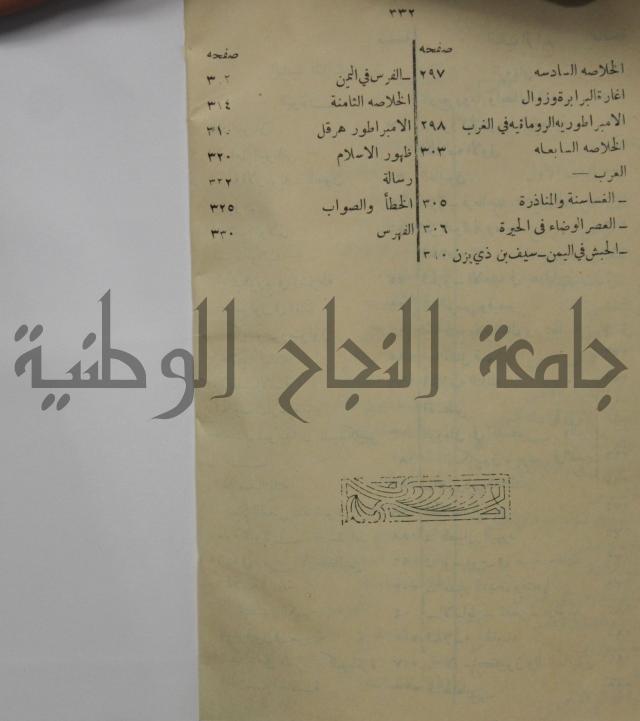 ٣٣٢
صفحه
الخلاصه السادسه ٢٩٧
اغارة البرابرة وزوال
الامبراطوريه الرومانيه في الغرب ٢٩٨
الخلاصه السابعاه ٣٠٣
العرب —
ـ الغساسنة والمناذرة ٣٠٥
ـ العصر الوضاء فى الحيرة ٣٠٦
ـ الحبش في اليمن ـ سيف بن ذي يزن
صفحه
ـ الفرس في اليمن
الخلاصه الثامنة ٣١٤
الامبراطور هرقل
ظهور الاسلام ٣٢٠
رسالة
الخطأ والصواب ٣٢٥
الفهرس ٣٣٠
جامعة النجاح الوطنية